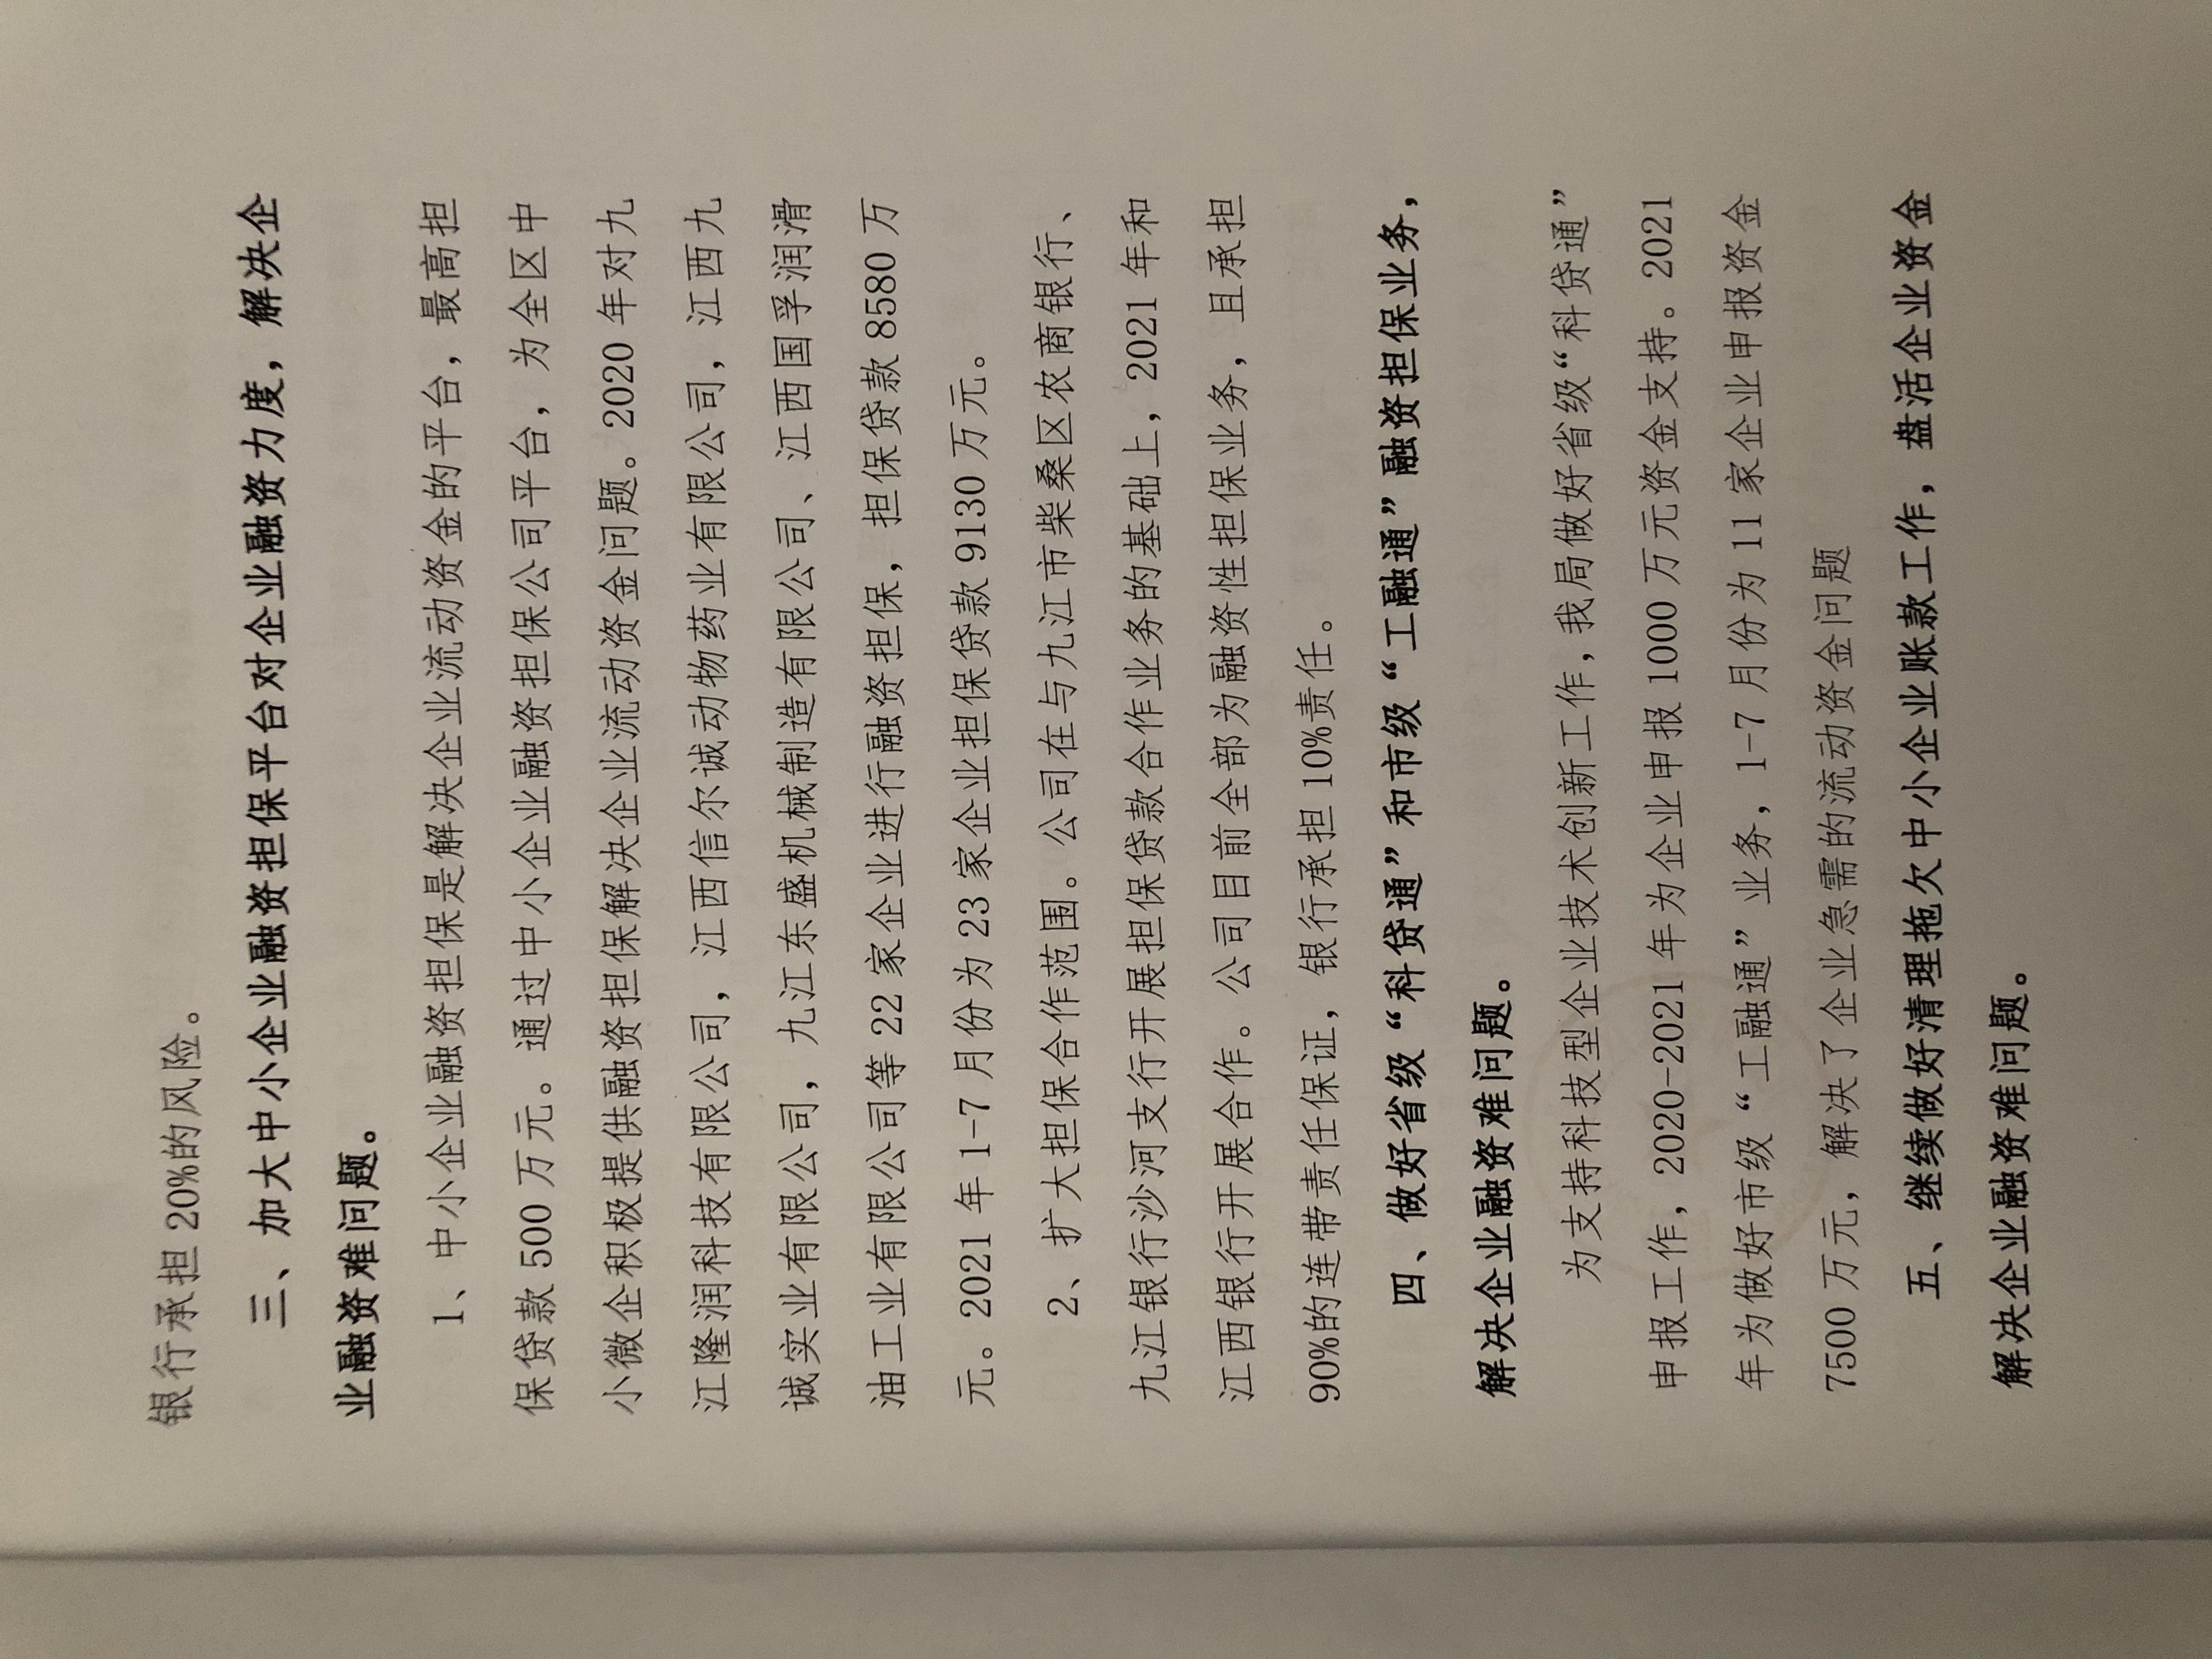 银行承担 20%的风险。
三、加大中小企业融资担保平台对企业融资力度，解决企
业融资难问题。
1、中小企业融资担保是解决企业流动资金的平台，最高担
保贷款 500 万元。通过中小企业融资担保公司平台，为全区中
小微企积极提供融资担保解决企业流动资金问题。2020 年对九
江隆润科技有限公司，江西信尔诚动物药业有限公司，江西九
诚实业有限公司，九江东盛机械制造有限公司、江西国孚润滑
油工业有限公司等 22 家企业进行融资担保，担保贷款 8580 万
元。2021 年 1-7 月份为 23 家企业担保贷款 9130 万元。
2、扩大担保合作范围。公司在与九江市柴桑区农商银行、
九江银行沙河支行开展担保贷款合作业务的基础上，2021 年和
江西银行开展合作。公司目前全部为融资性担保业务，且承担
90%的连带责任保证，银行承担 10%责任。
四、做好省级“科贷通”和市级“工融通”融资担保业务，
解决企业融资难问题。
为支持科技型企业技术创新工作，我局做好省级“科贷通”
申报工作，2020-2021 年为企业申报 1000 万元资金支持。2021
年为做好市级“工融通”业务，1-7 月份为 11 家企业申报资金
7500 万元，解决了企业急需的流动资金问题
五、继续做好清理拖欠中小企业账款工作，盘活企业资金
解决企业融资难问题。